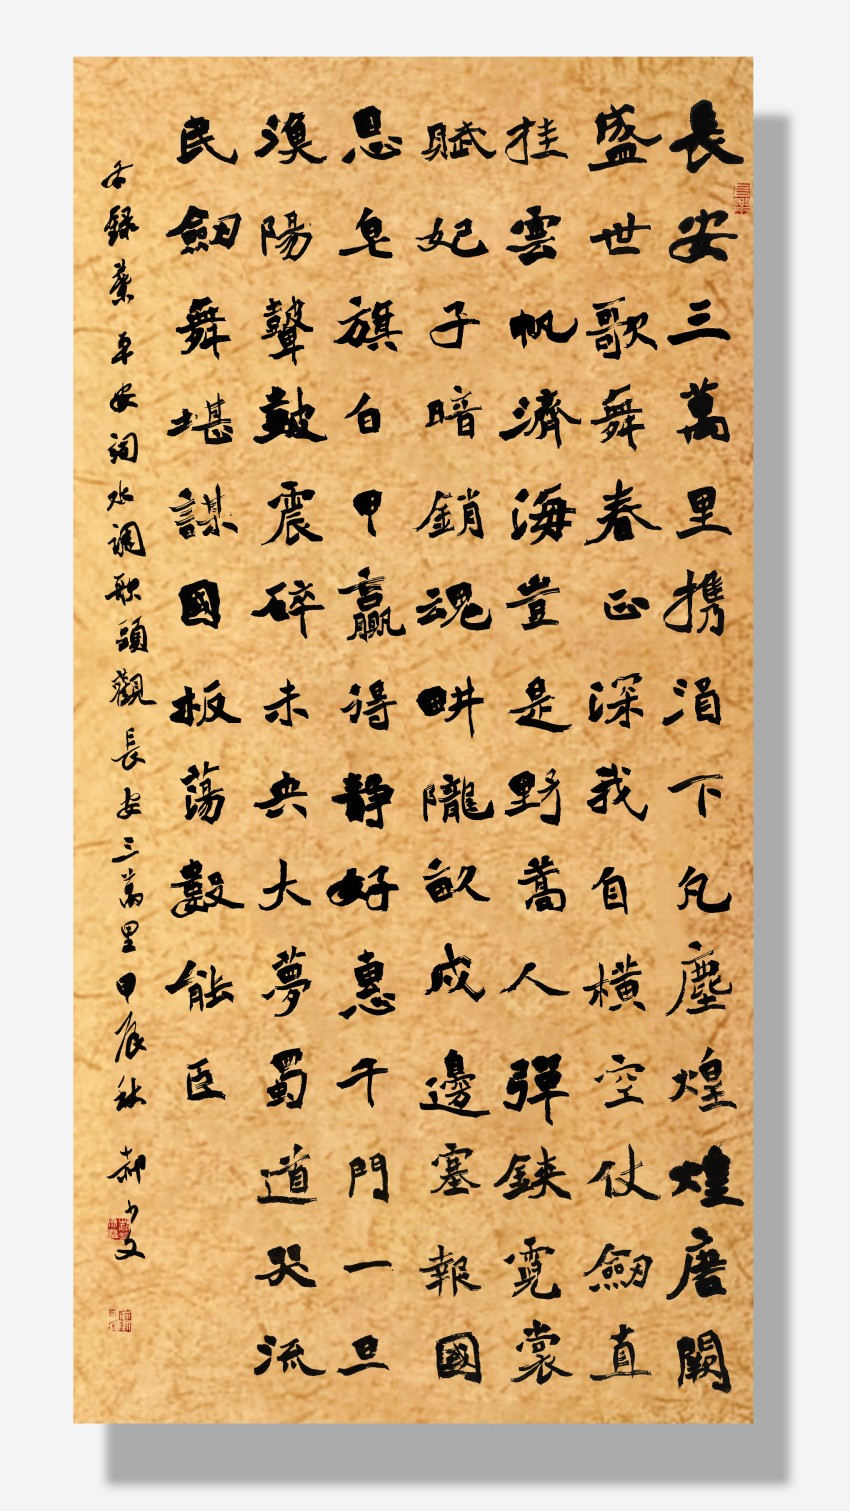 長安三萬里携涓下凡塵煌煌唐闕
盛世歌舞春正深我自橫空仗劒直
挂雲帆濟海豈是野蒿人彈鋏霓裳
賦妃子暗銷魂畊隴畝戍邊塞報國
思皂旗白甲贏得靜好惠千門一旦
漁陽鼙鼓震碎未央大夢蜀道哭流
民劒舞堪謀國板蕩數能臣
右録葉卓安詞水调歌頭觀長安三萬里甲辰秋 郝少文